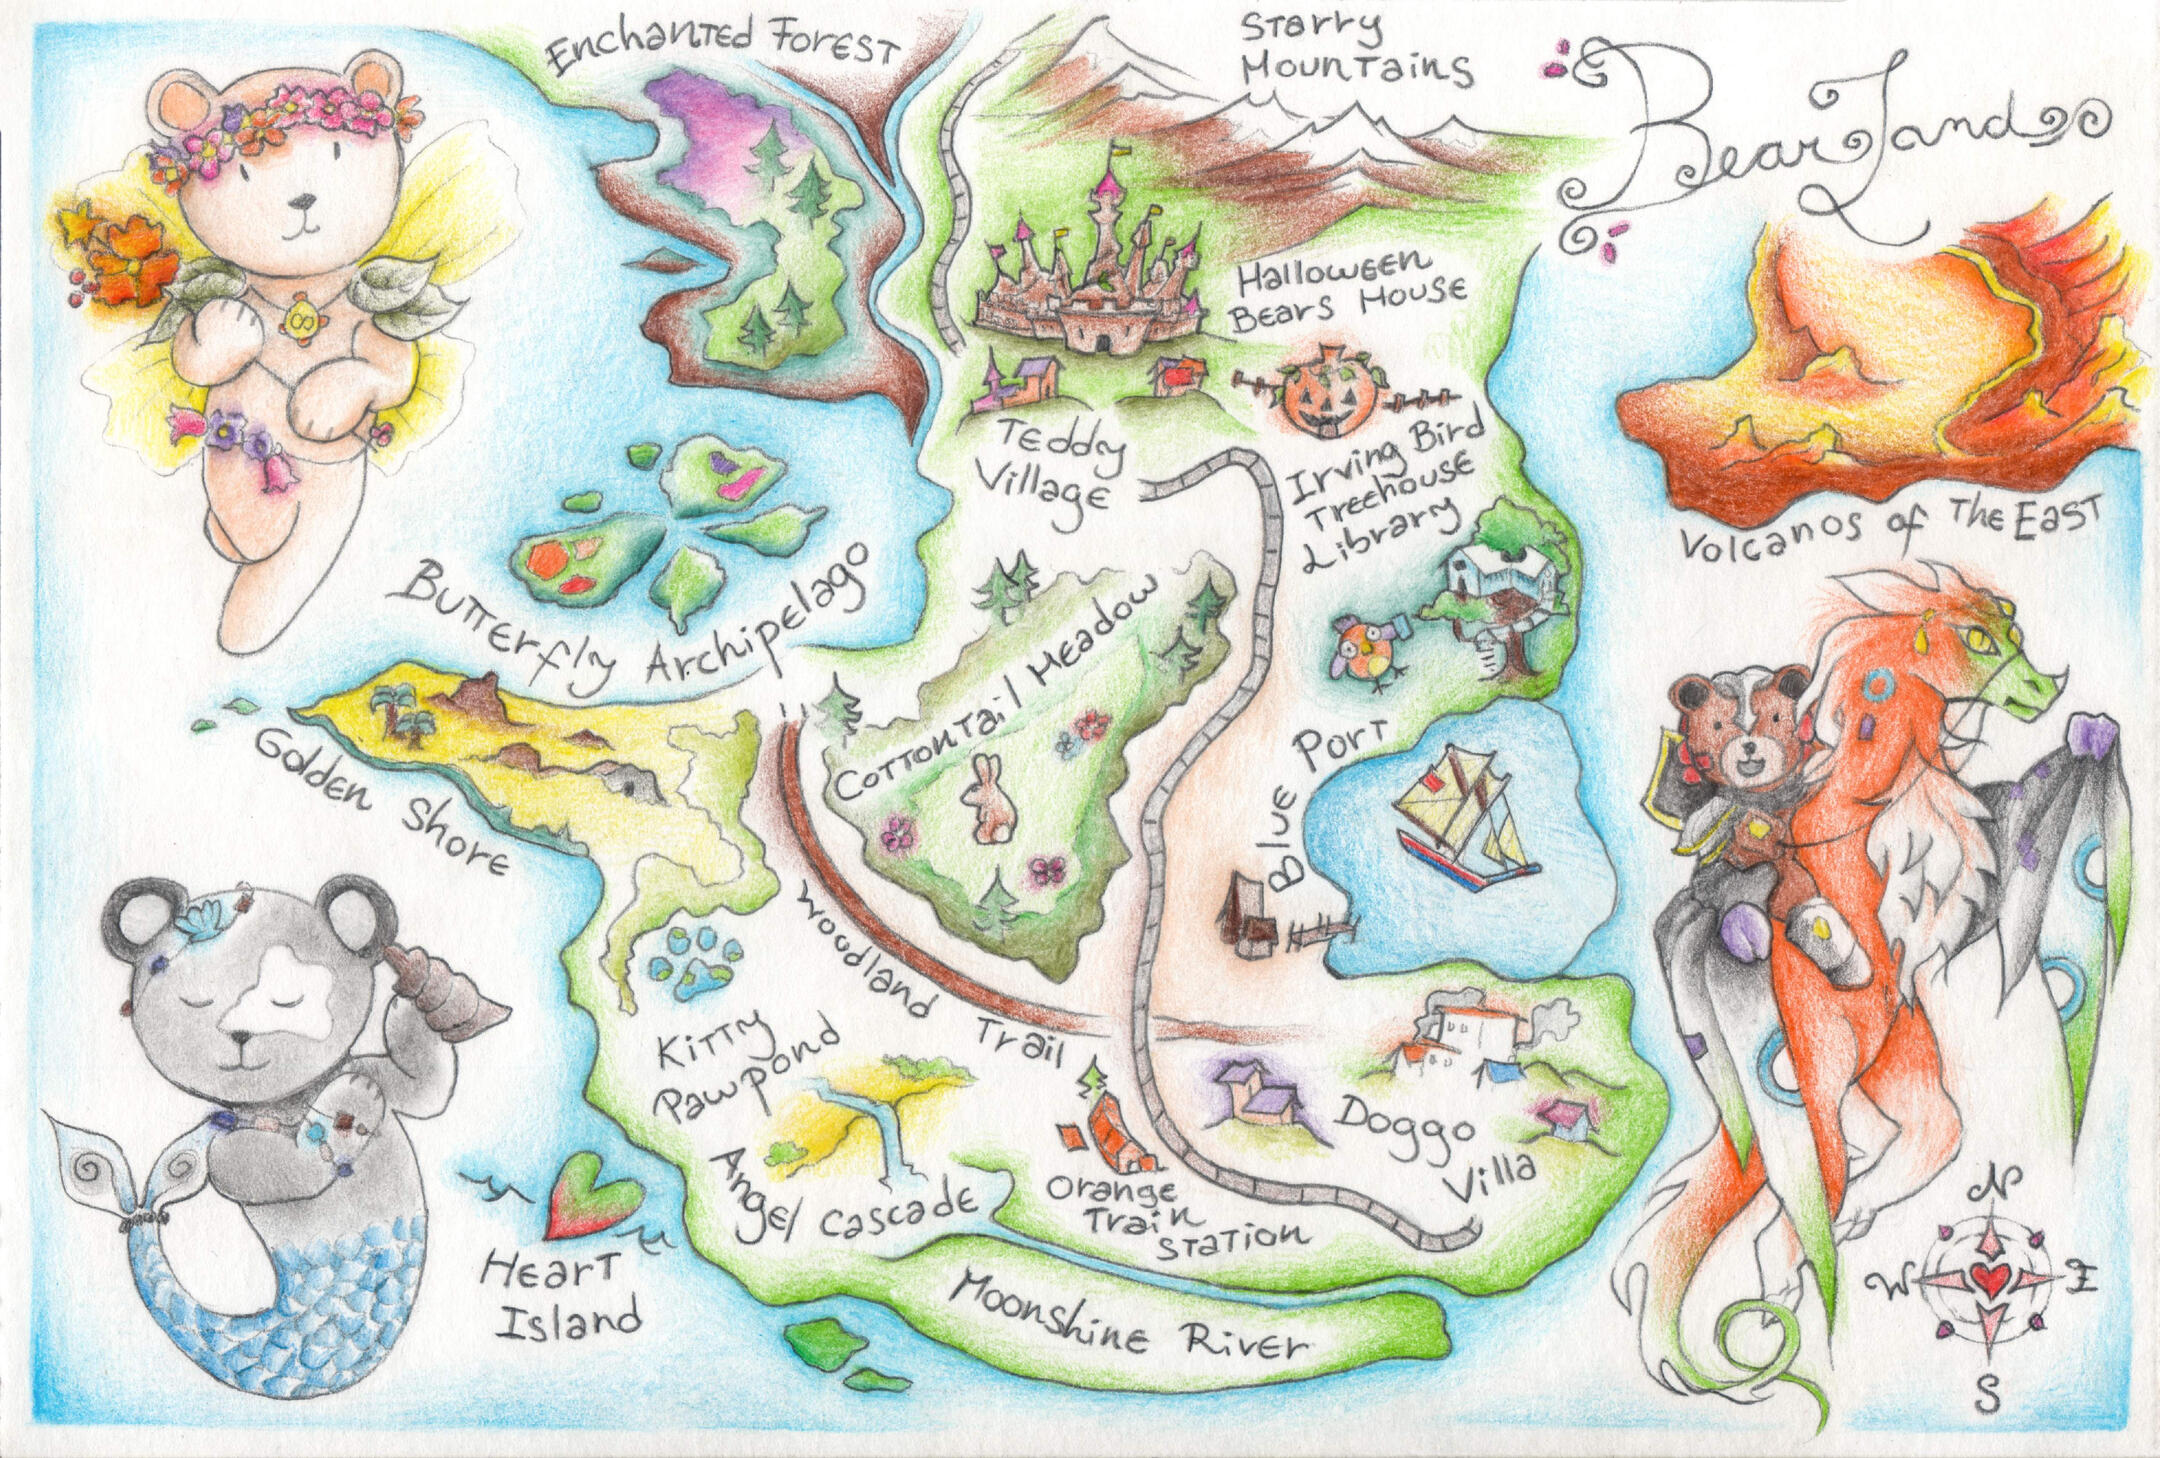 Enchanted Forest
Starry
Mountains
Bear Land
Halloween
Bears House
Teddy
Village
Irving Bird
Treehouse
Library
Volcanos of the East
Butterfly Archipelago
Cottontail Meadow
Golden Shore
Blue Port
Woodland Trail
Kitty
Pawpond
Angel Cascade
Orange
Train
Station
Doggo
Villa
Heart
Island
Moonshine River
N
W
E
S